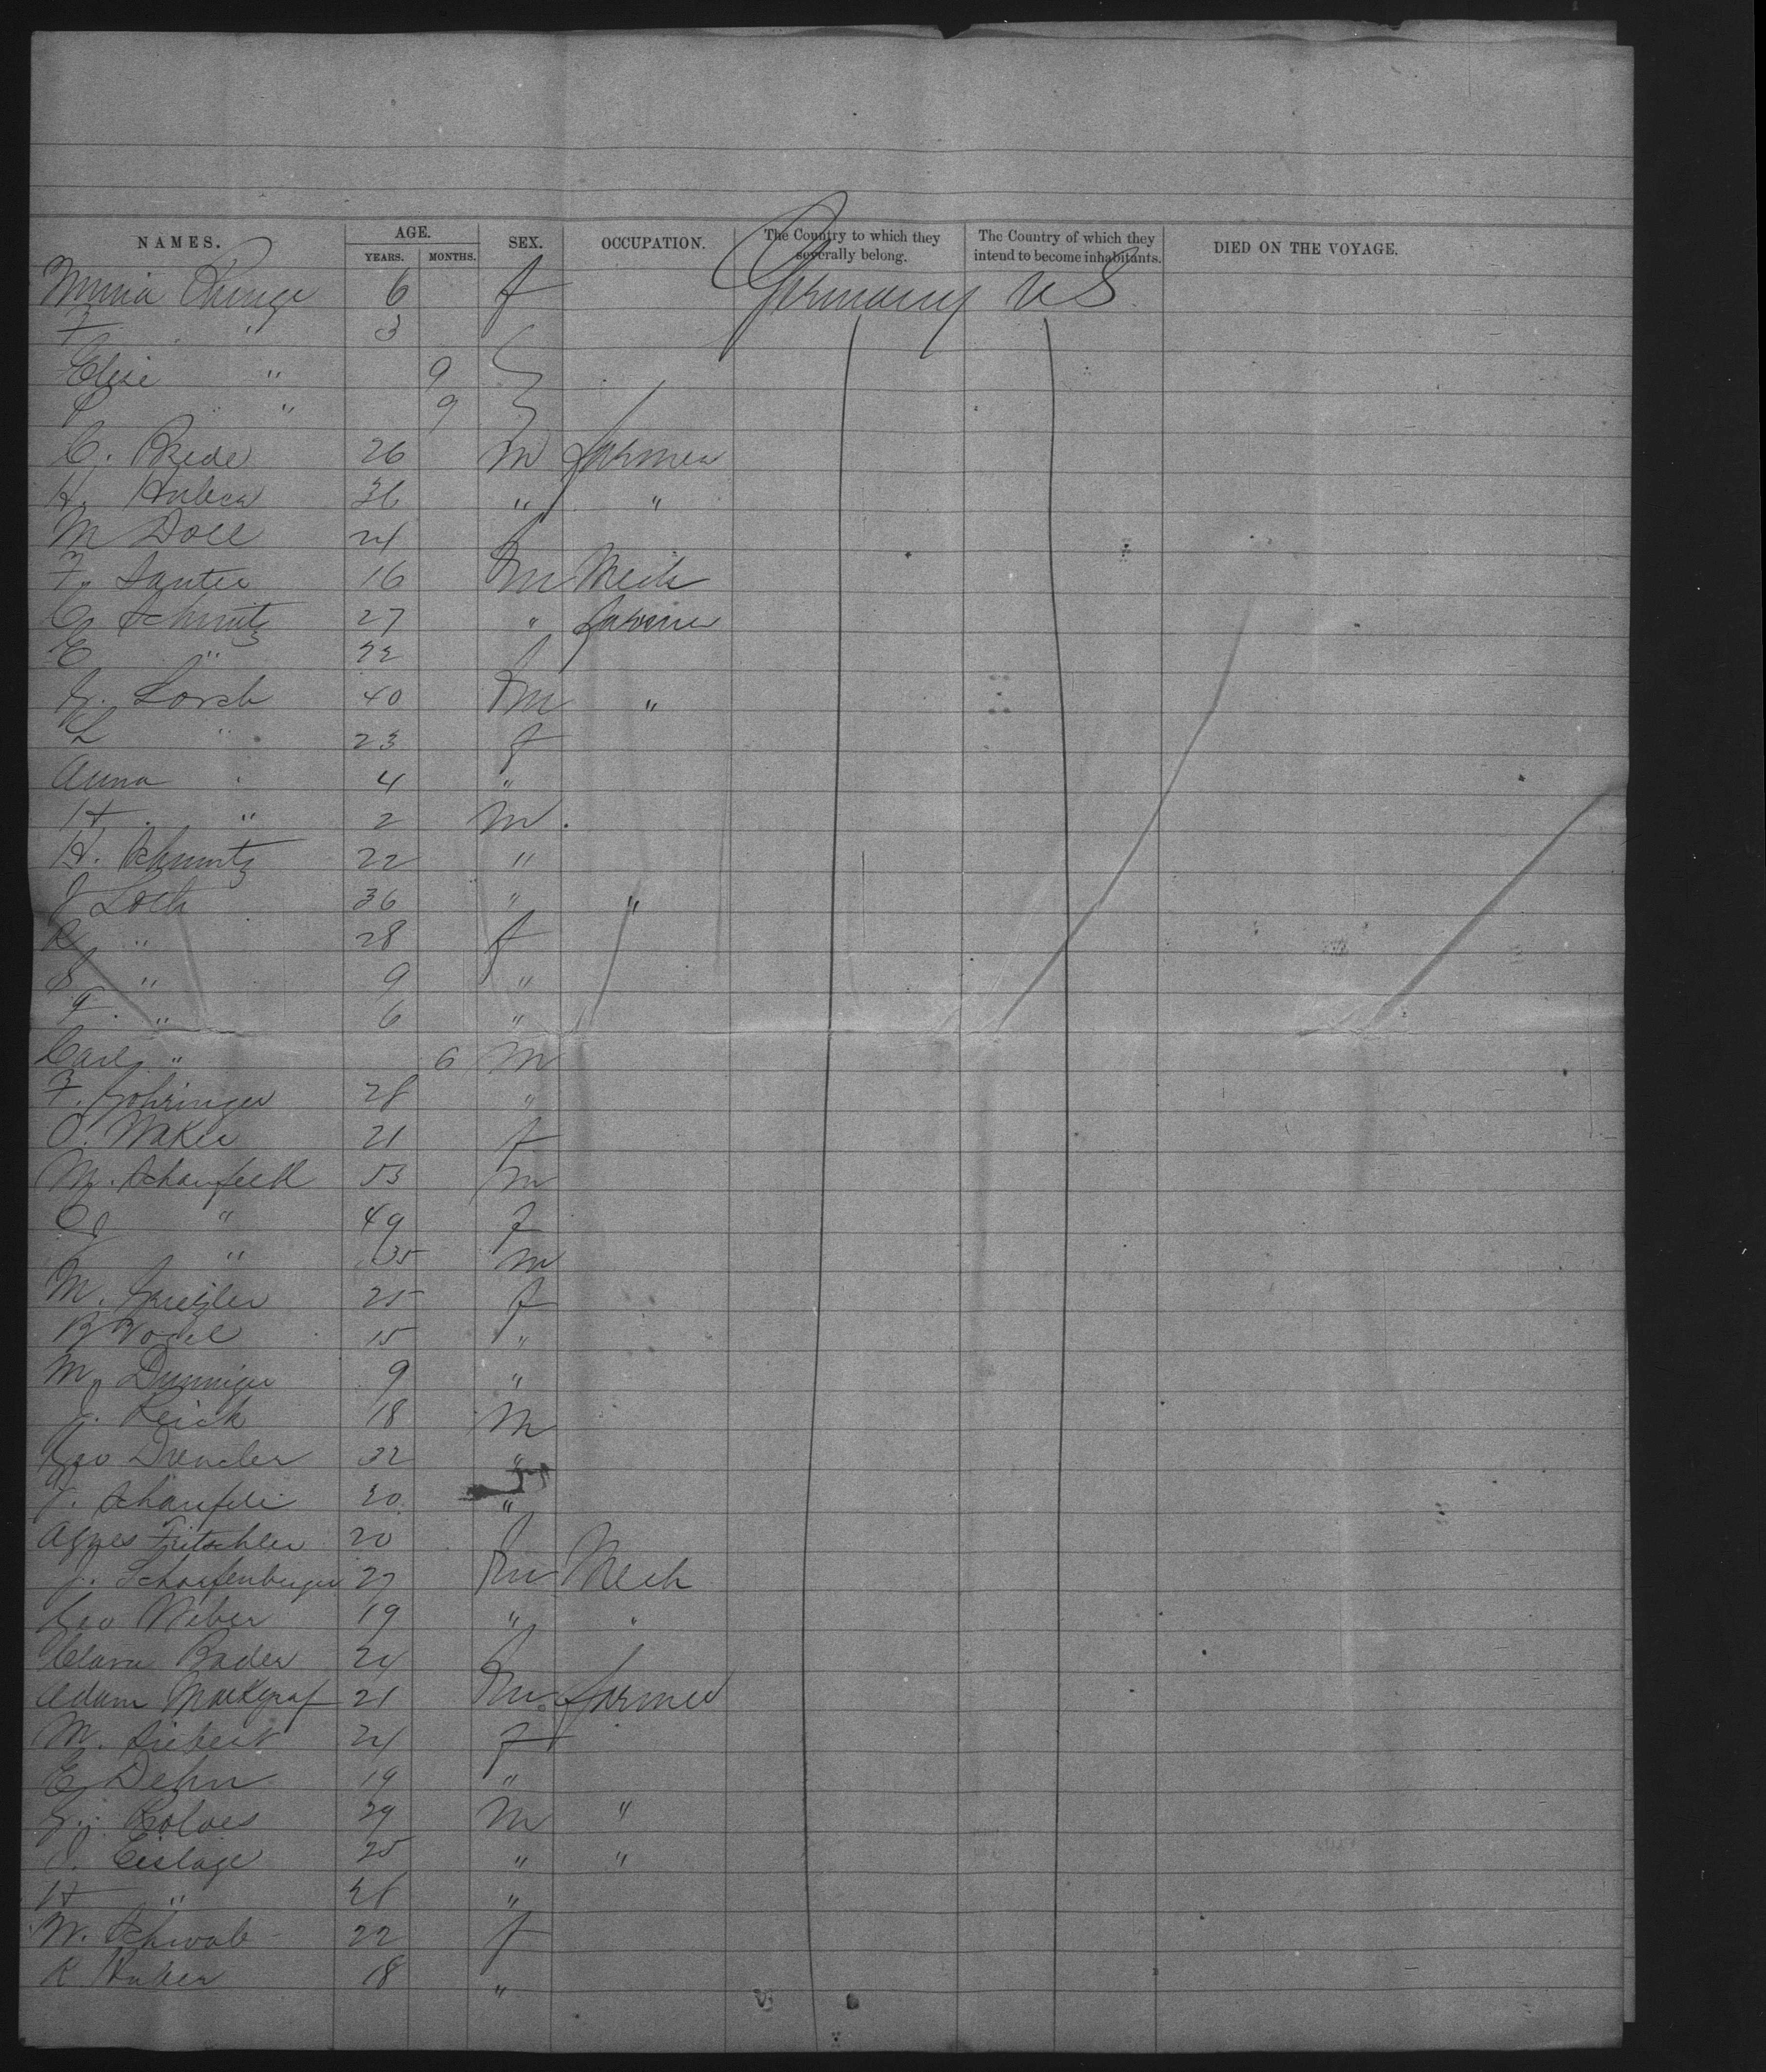 NAMES. AGE. SEX. OCCUPATION. The Country to which they severally belong. The Country of which they intend to become inhabitants. DIED ON THE VOYAGE.
YEARS. MONTHS.
6 f Germany U S
F " 3
Elise " 9
" 9
C. Brede 26 m farmer
H. Huber 36 " "
M Doll 24 f
F. Santer 16 m Mech
C Schmitz 27 " farmer
E " 22 f
G. Lorch 40 m "
L " 23 f
Anna " 4 "
H. " 2 m.
H. Schmitz 22 "
J Loch 36 " "
R " 28 f
S " 9 "
F. " 6 "
Carl " 6 m
F. Gohringer 28 "
O. Waker 21 f
M. Schanfeld 53 m
C " 49 f
" 35 m
M. 25 f
B Vogel 15 "
M. Dunniger 9 "
J. Reich 18 m
Geo Drexler 32 "
J. 30 "
Agnes Fritschler 20 f
J. Scharfenberger 27 m Mech
Geo Weber 19 " "
Clara Bader 24 f
Adam Markgraf 21 m farmer
M. Siebert 24 f
E. Dehn 19 "
G. Kolves 29 m "
J. Eislage 25 " "
H " "
W. Schwab 22 f
K Huber 18 "